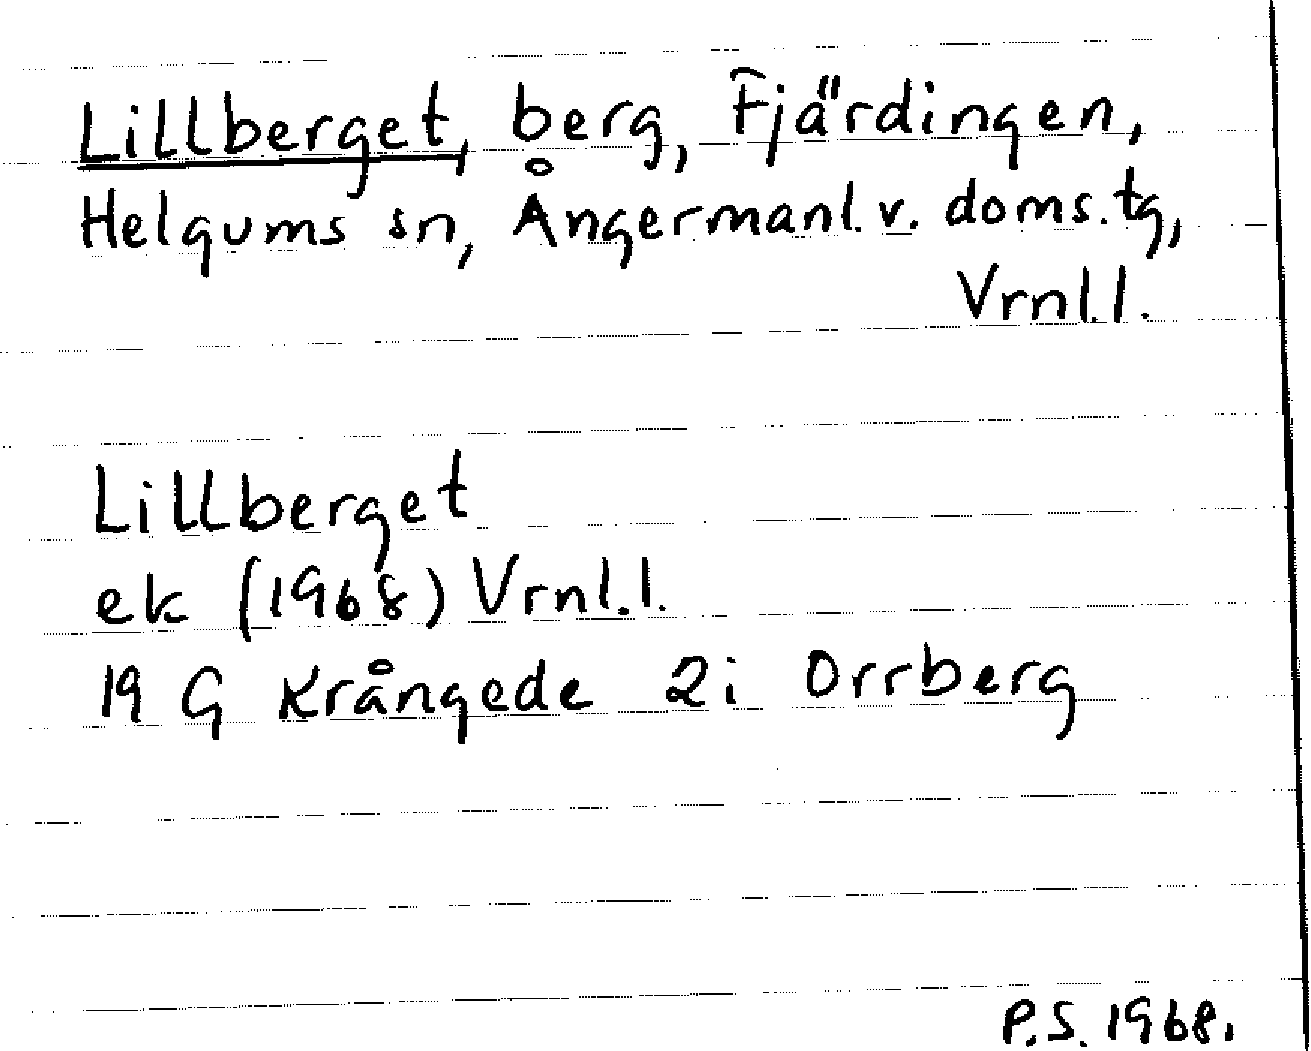 Lillberget, berg, Fjärdingen,
Helgums sn, Ångermanl. v. doms.tg,
Vrnl.l.
Lillberget
ek (1968) Vrnl.l.
19 G Krångede 2i Orrberg
P.S. 1968.